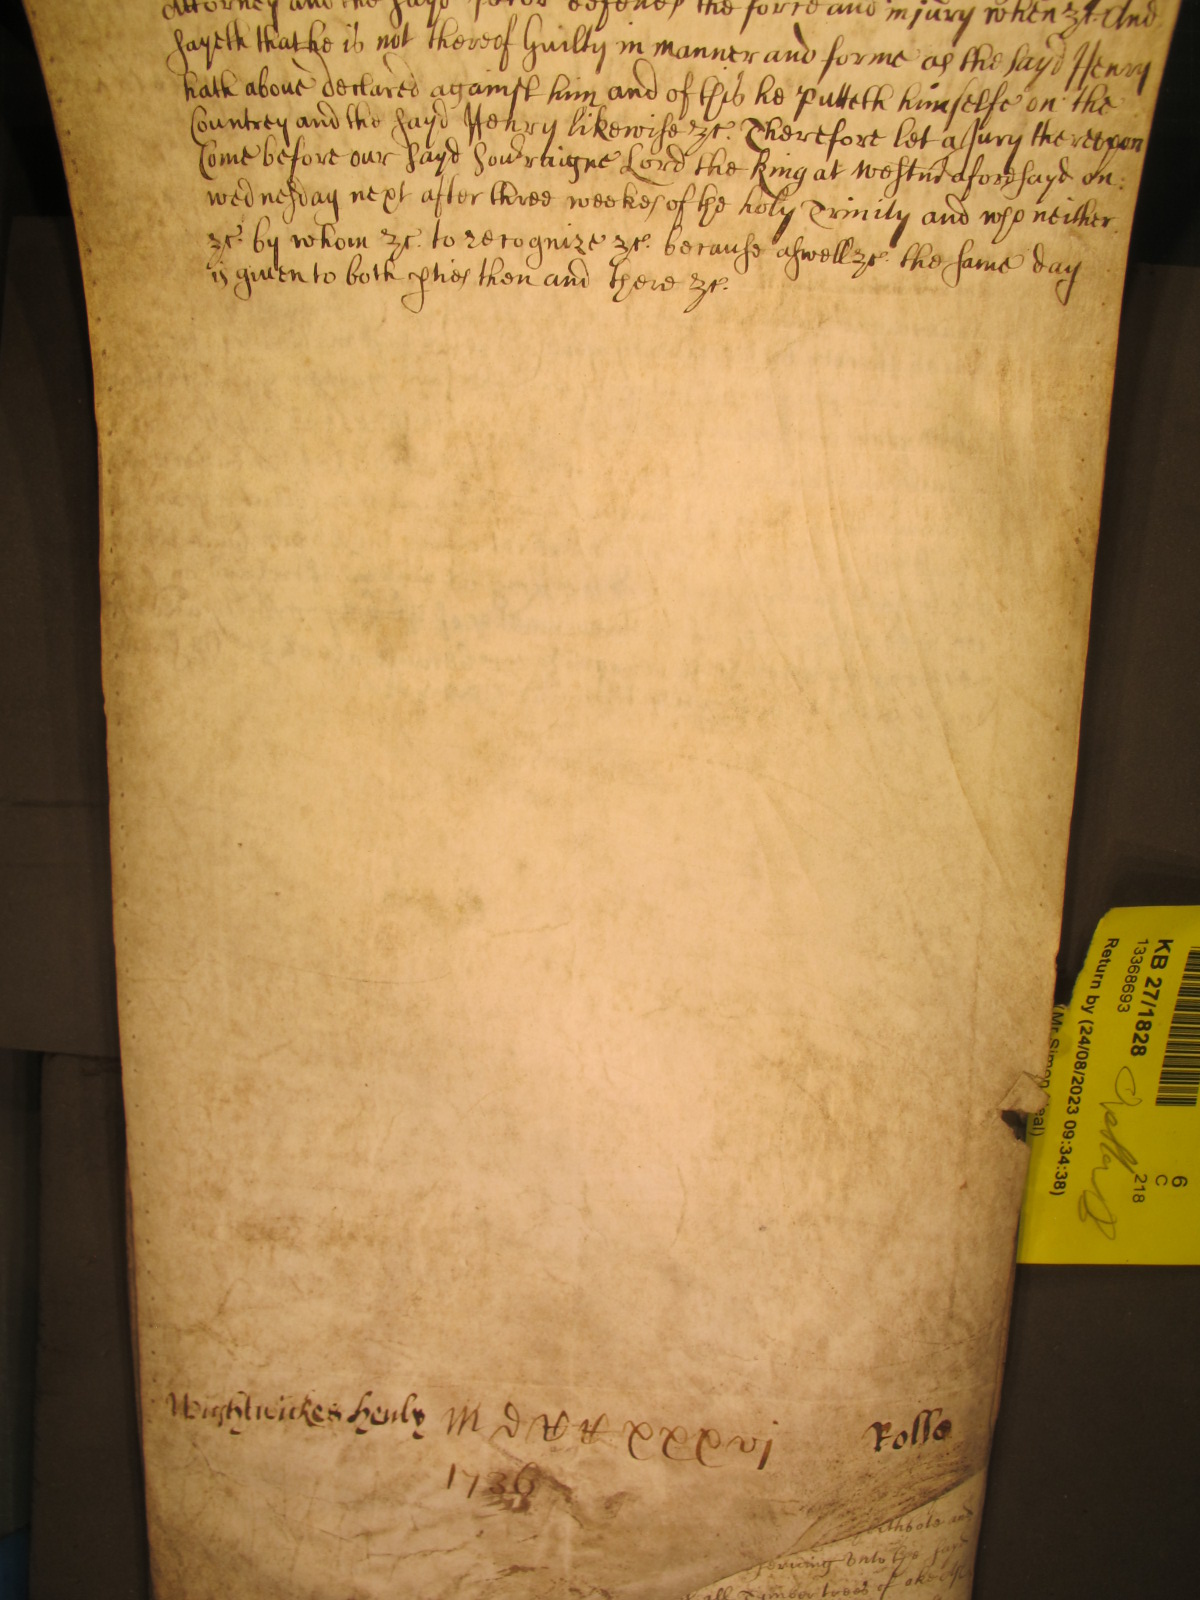 Attorney and the sayd defends the force and injury when &c. And
sayeth that he is not thereof Guilty in manner and forme as the sayd Henry
hath above declared against him and of this he putteth himselfe on the
Countrey and the sayd Henry likewise &c. Therefore let a Jury thereupon
Come before our sayd Sov'raigne Lord the King at Westm' aforesayd on
wednesday next after three weekes of the holy Trinity and who neither
&c. by whom &c. to recognize &c. because aswell &c. the same day
is given to both p'ties then and there &c.
KB 27/1828
13368693
Return by (24/08/2023 09:34:38)
(Mr Simon
6
C
218
Wightwicke & Henly M D CC xxxvi Rolle
1736
and
unto the sayd
all Timber trees of oke